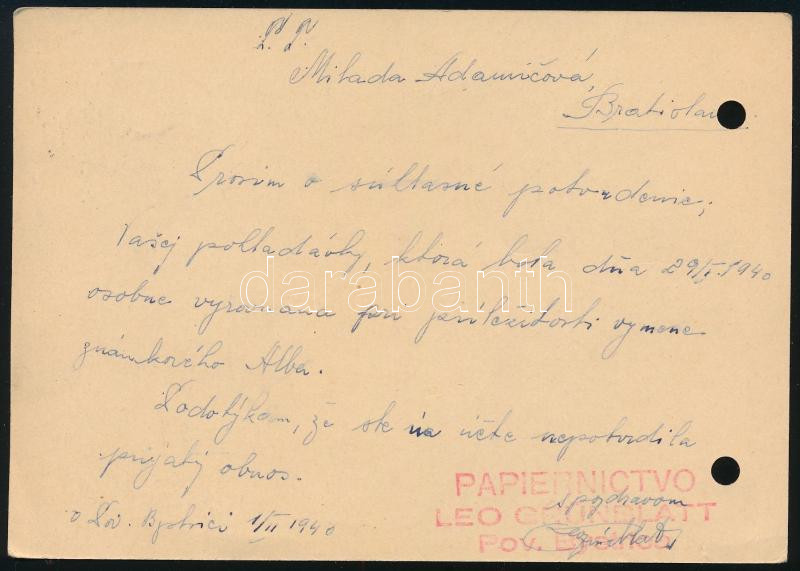 Milada Adamičová,
Bratislava.
Prosím o súhlasné potvrdenie,
Vašej pohladávky, ktorá bola dňa 29/I. 1940
darabanth
osobne vyrovnana pri príležitosti vymene
známkového Alba.
Podotýkam, že ste na účte nepotvrdila
prijatý obnos.
PAPIERNICTVO
s pozdravom
LEO GRÜNBLATT
v Pov. Bystrici 1/II 1940
Pov. Bystrica